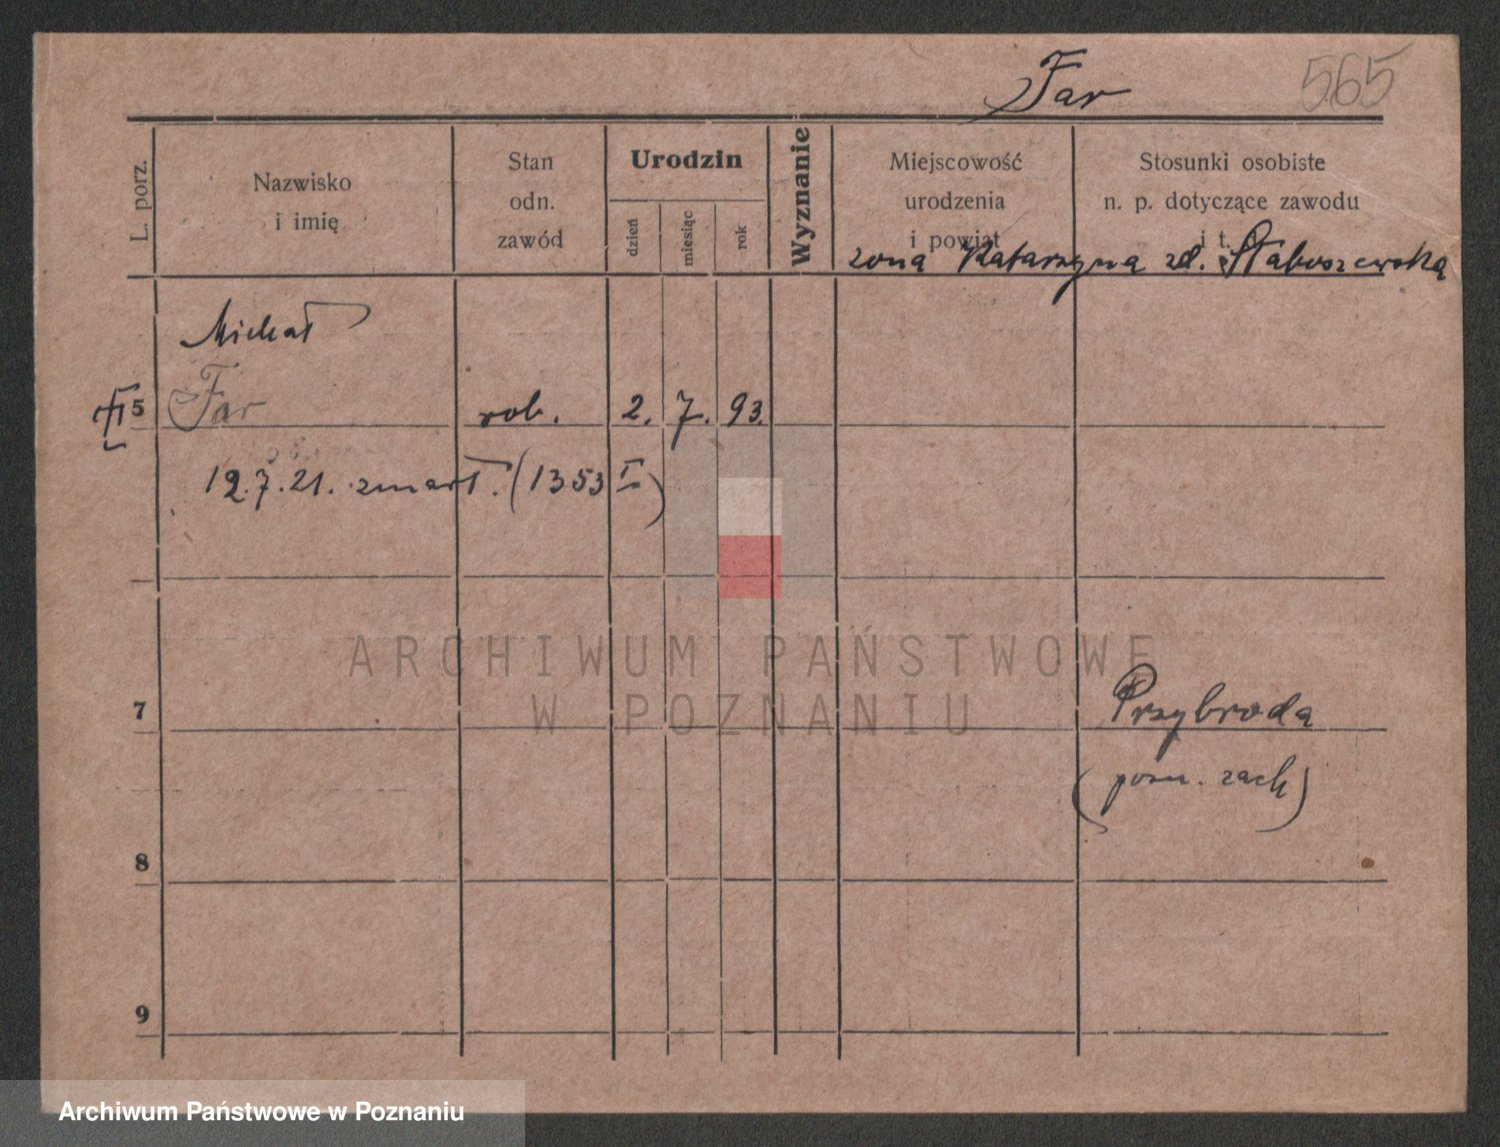 Far 565
L. porz.
Nazwisko
i imię
Stan
odn.
zawód
Urodzin
dzień
miesiąc
rok
Wyznanie
Miejscowość
urodzenia
i powiat
Stosunki osobiste
n. p. dotyczące zawodu
i t.
żona Katarzyna zd. Staboszewska
Michał
5 Far rob. 2. 7. 93.
12.7.21. zmarł. (1353 I)
ARCHIWUM PAŃSTWOWE
W POZNANIU
7 Przybroda
(pozn. zach)
8
9
Archiwum Państwowe w Poznaniu